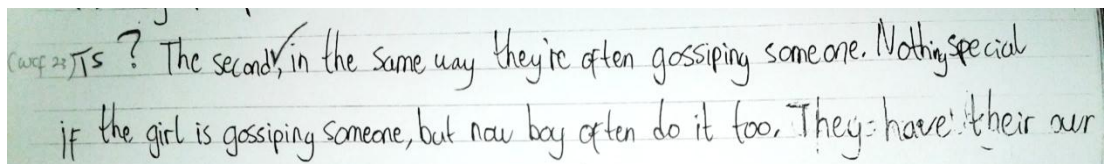 (WCF 23) TS ? The second, in the same way they're often gossiping someone. Nothing special
if the girl is gossiping someone, but now boy often do it too. They have their own